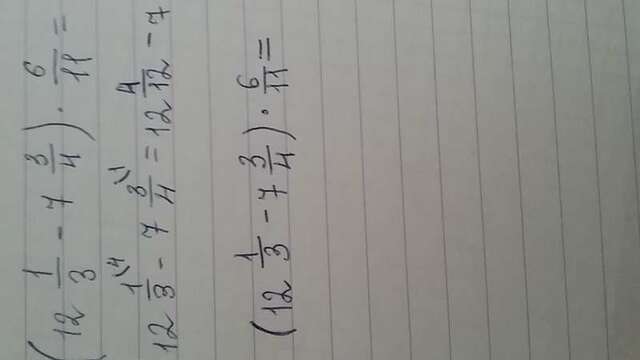 (12 1/3 - 7 3/4) · 6/11 =
12 1/3\4 - 7 3/4\1 = 12 4/12 - 7
(12 1/3 - 7 3/4) · 6/11 =